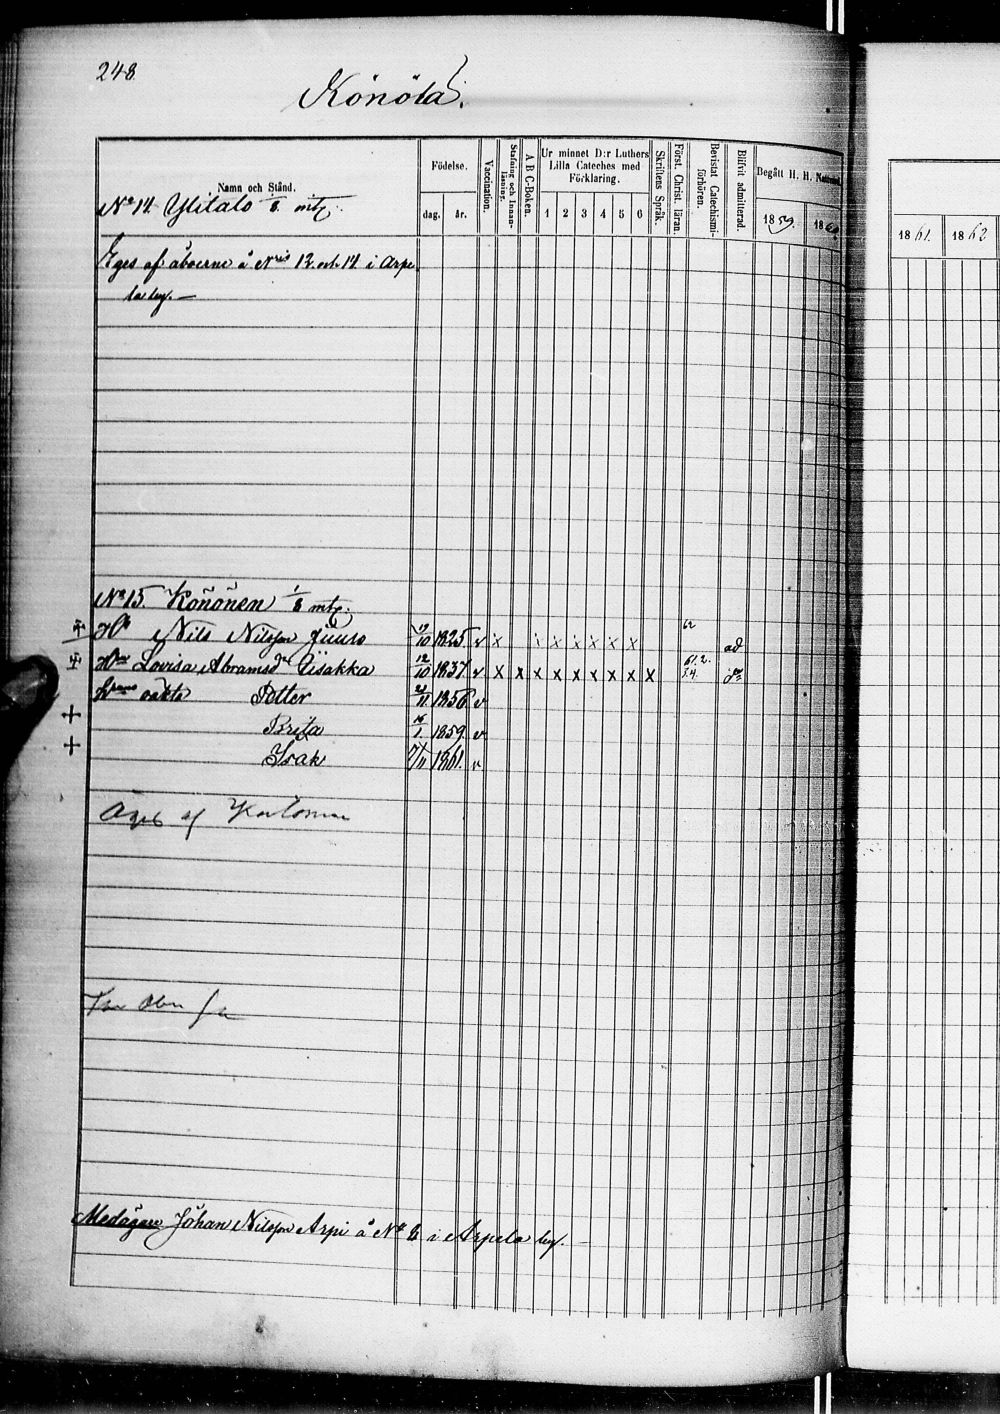 248
Könölä.
Namn och Stånd.
Födelse.
dag. år.
Vaccination.
Stafning och Innanläsning.
A B C-Boken.
Ur minnet D:r Luthers Lilla Cateches med Förklaring.
1 2 3 4 5 6
Skriftens Språk.
Först. Christ. läran.
Bevistat Catechismiförhören.
Blifvit admitterad.
Begått H. H. Nattvard.
1859. 1860
1861. 1862
No 14. Ylitalo 1/8 mtl.
Eges af åboerne å Nris 12. och 14. i Arpe
la by. —
No 15. Könönen 1/8 mtl.
Nils Nilsson Juuso /10 1825. v x x x x x x x 62 ad
Lovisa Abramsdr Iisakka 12/10 1837 v x x x x x x x x x 61.2. 3.4. do
Petter /11 1856 v
Brita /1. 1859. v
Isak 7/11 1861. v
Äges af
Medägare Johan Nilsson Arpi å No 6 i Arpela by.